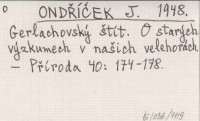 o
ONDŘÍČEK J. 1948.
Gerlachovský štít. O starých
výzkumech v našich velehorách.
– Příroda 40: 174-178.